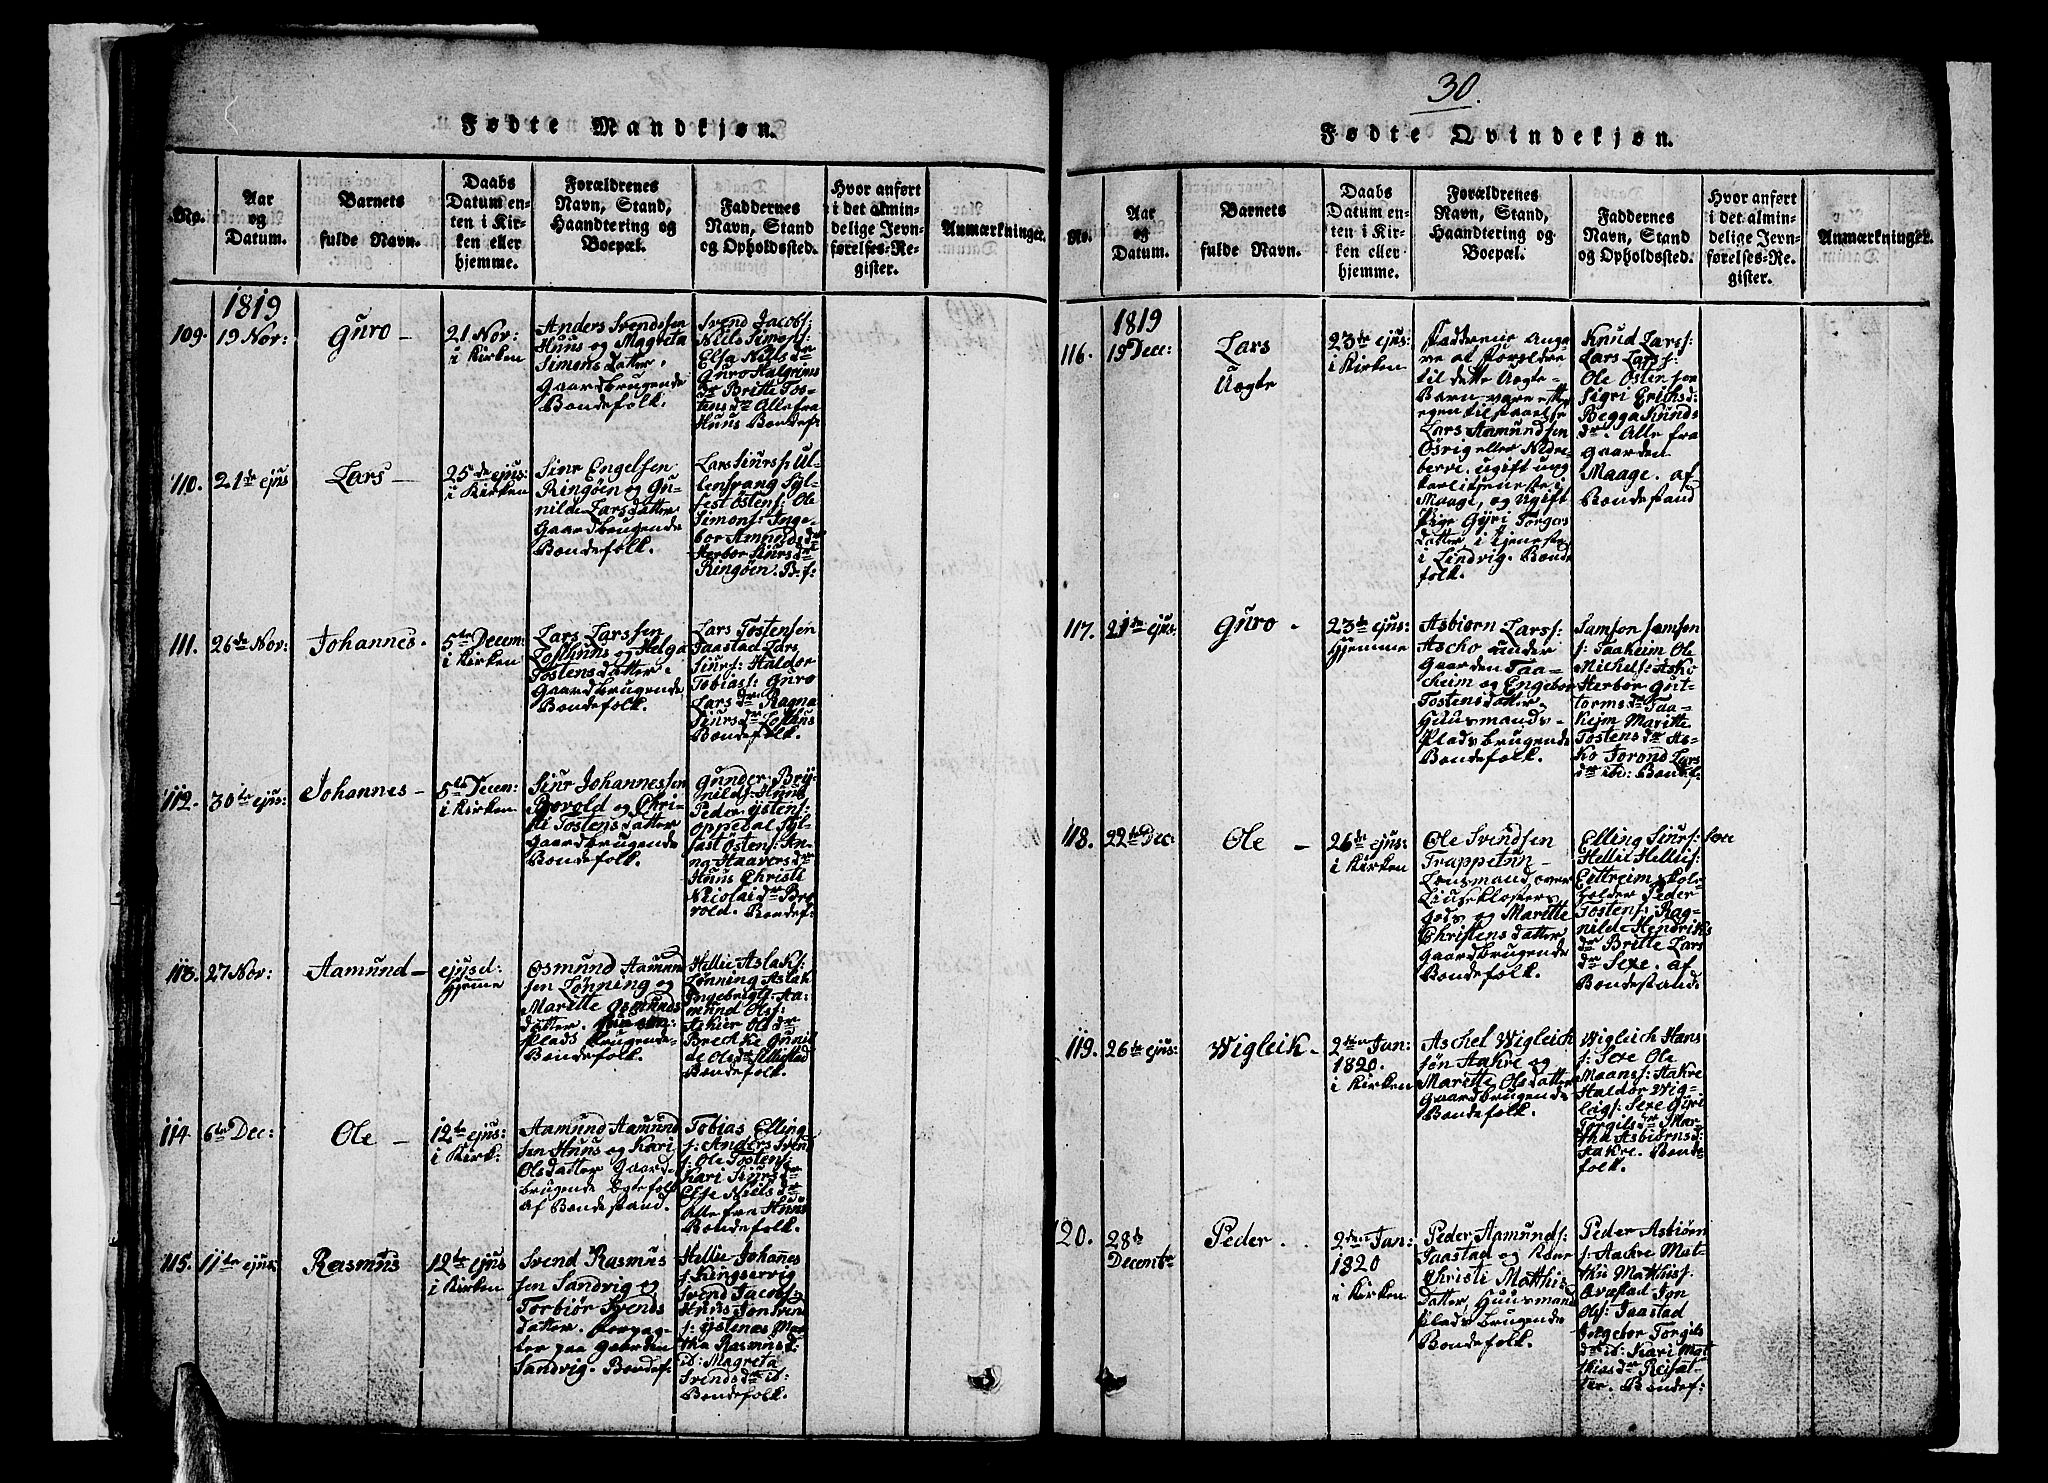 30.
Fødte Mandkjøn.
No.
Aar
og
Datum.
Barnets
fulde Navn.
Daabs
Datum en-
ten i Kir-
ken eller
hjemme.
Forældrenes
Navn, Stand,
Haandtering og
Boepæl.
Faddernes
Navn, Stand
og Opholdssted.
Hvor anført
i det almin-
delige Jevn-
førelses-Re-
gister.
Anmærkninger.
1819
109.
19 Nov:
Guro
21 Nov:
i Kirken
Anders Svendssen
Huus og Magreta
Simons Datter.
Gaardbrugende
Bondefolk.
Svend Jacobs:
Niels Simons:
Elsa Niels dr
Guro Halgrims
dr Britte Tos-
tens dr Alle fra
Huus Bondef:
110.
21de ejus
Lars
25de ejus:
i Kirken
Siur Engelsen
Ringøen og Gu-
nilde Larsdatter
Gaardbrugende
Bondefolk.
Lars Siurss: Ul-
lensvang Syl-
fest Ostens: Ole
Simons: Inge-
bor Amunds dr
Herbor Siurs dr
Ringøen. B.f:
111.
26de Nov:
Johannes.
5te Decem:
i Kirken
Lars Larssen
Lofthuus og Helga
Tostens Datter.
Gaardbrugende
Bondefolk.
Lars Tostensen
Jaastad Lars
Siurs: Haldor
Tobias: Guro
Lars dr Ragna
Siurs dr Lofthus
Bondefolk.
112.
30te ejus:
Johannes
5te Decem:
i Kirken
Siur Johannessen
Bervold og Chri-
sti Tostens datter
Gaardbrugende
Bondefolk.
Gunder Bry-
nilds: Huus
Peder Ystens:
Oppedal Syl-
fast Ostens: An-
na Haavers dr
Huus Christi
Nicolai dr Ber-
vold. Bondef:
113.
27 Nov:
Aamund
ejusd:
Hjeme
Osmund Aamund
sen Lønning og
Maritte Osmunds
datter.
Plads brugende
Bondefolk.
Hellie Aslaks:
Lønning Aslak
Ingebrigts: Aa-
mund Ols:
Askier Ols dr
Brechke Gunil-
de Ols dr
Bondefolk.
114
6te Dec:
Ole
12te ejus:
i Kirk:
Aamund Aamund
sen Huus og Kari
Olsdatter Gaard-
brugende Egtefolk
af Bondestand.
Tobias Elling
s: Anders Svend
s: Ole Tostens:
Kari Siurs dr
Else Niels dr
Alle fra Huus
Bondefolk.
115.
11te ejus:
Rasmus
12te ejus
i Kirken
Svend Rasmus
sen Sandvig og
Torbiør Svends
datter. Forpag-
ter paa Gaarden
Sandvig. Bondef.
Hellie Johannes
s: Kingservig
Svend Jacobs:
Huus Jon Svend
s: Ystenæs Mar-
tha Rasmusd:
id: Magreta
Svends dr id:
Bondefolk.
Fødte Qvindekjøn.
No.
Aar
og
Datum.
Barnets
fulde Navn.
Daabs
Datum en-
ten i Kir-
ken eller
hjemme.
Forældrenes
Navn, Stand,
Haandtering og
Boepæl.
Faddernes
Navn, Stand
og Opholdssted.
Hvor anført
i det almin-
delige Jevn-
førelses-Re-
gister.
Anmærkninger.
1819
116.
19 Dec:
Lars
Uægte
23de ejus:
i Kirken
Fadderne ange-
ve at Foreldre
til dette Uægte-
Barn vare efter
egen tilstaaelse
Lars Aamundsen
Østrig eller Nedre-
berve. ugift ung-
karl i tjeneste i
Maage, og Ugift
Pige Gyri Torgers
datter i tjeneste
i Lindvig. Bonde
folk.
Knud Lars:
Lars Lars:
Ole Ostensen
Sigri Erichsd:
Begga Knuds
dr. Alle fra
Gaarden
Maage. af
Bondestand
117.
21de ejus
Guro
23de ejus:
Hjemme
Asbiørn Lars:
Ascho under
Gaarden Taa-
cheim og Engebor
Tostensdatter
Huusmands-
Plads brugende
Bondefolk.
Samson Samson
s: Taaheim Ole
Michels: Asko
Herbor Gut-
torms dr Taa-
kejm Maritte
Tostens dr As-
ko Torond Lars
dr ibd: Bondef.
118.
22de Dec:
Ole
26de ejus:
i Kirken
Ole Svendsen
Trappetun
Lensmand over
Liuseklosters
Gods og Maritte
Christens datter
Gaardbrugende
Bondefolk.
Elling Siurs: Sexe
Hellie Hellis:
Eittreim Skole-
holder Peder
Tostens: Rag-
nilde Hendriks
dr Britte Lars
dr Sexe. af
Bondestand.
119.
26de ejus:
Wigleik
2den Jan:
1820.
i Kirken
Aschel Wigleich
søn Aakre og
Maritte Olsdatter
Gaardbrugende
Bondefolk.
Wigleich Hans
s: Sexe Ole
Maans: Aakre
Haldor Wig-
leigs: Sexe Gyri
Torgils dr Mar-
tha Asbiørnsd:
Aakre. Bonde
folk.
120.
28de
Decembr
Peder
2den Jan:
1820
i Kirken
Peder Aamunds:
Jaastad og Kone
Christi Matthis
datter, Huusmand
Plads brugende
Bondefolk.
Peder Asbiørn
s: Aakre Mat-
this Mathis:
Qvæstad Jon
Ols: Jaastad
Ingebor Torgils
dr id: Kari Mat
thias dr Reisæt-
ter. Bondef: